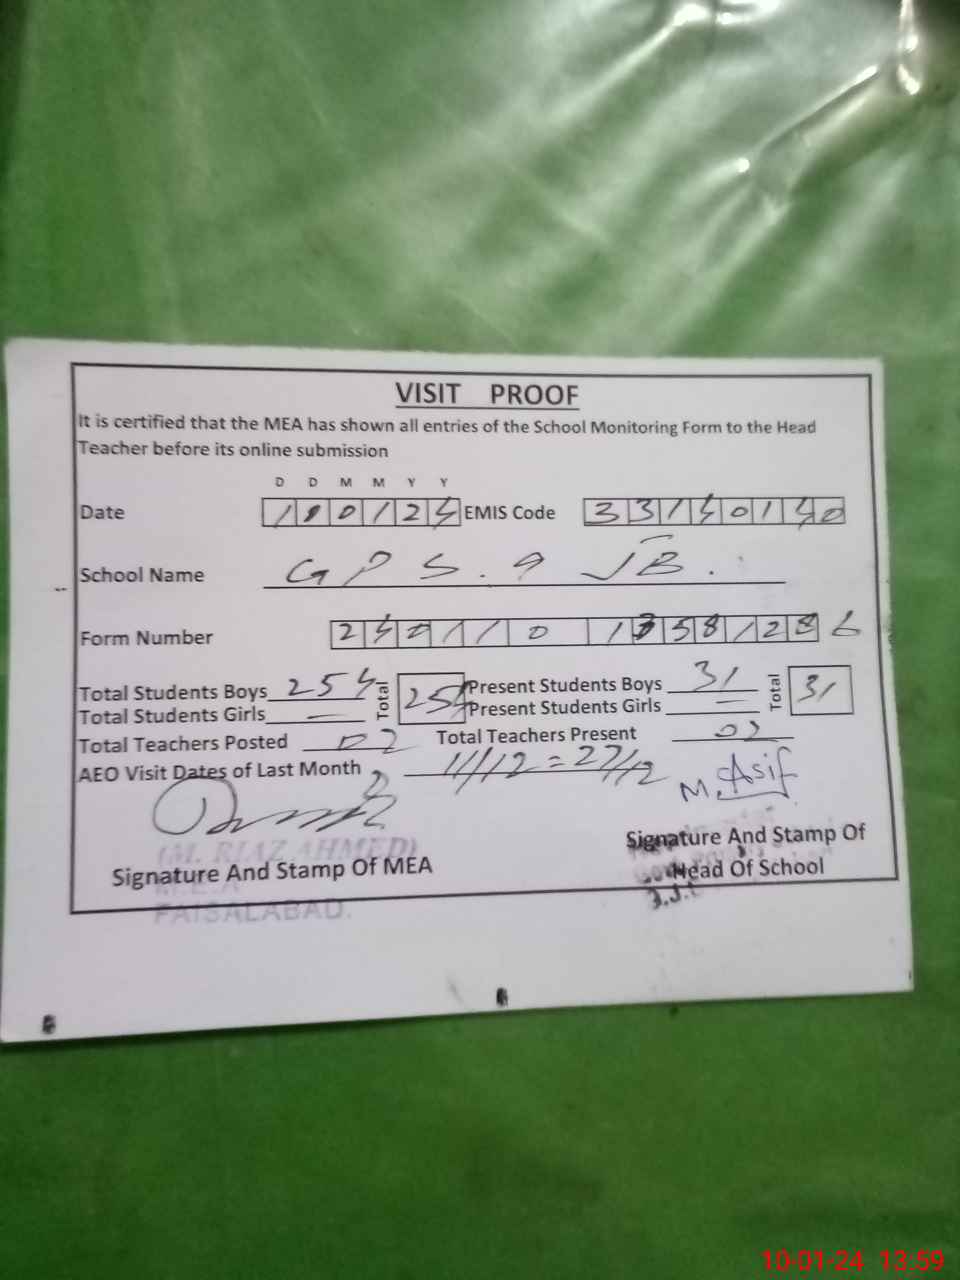 VISIT PROOF
It is certified that the MEA has shown all entries of the School Monitoring Form to the Head
Teacher before its online submission
D D M M Y Y
Date 100124 EMIS Code 33140140
School Name GPS. 9 JB.
Form Number
Total Students Boys 254 Total 254 Present Students Boys 31 Total 31
Total Students Girls — Present Students Girls —
Total Teachers Posted 02 Total Teachers Present 02
AEO Visit Dates of Last Month 11/12 = 27/12
M. Asif
(M. RIAZ AHMED)
Signature And Stamp Of MEA
M.E.A
FAISALABAD.
Signature And Stamp Of
Head Of School
10-01-24 13:59